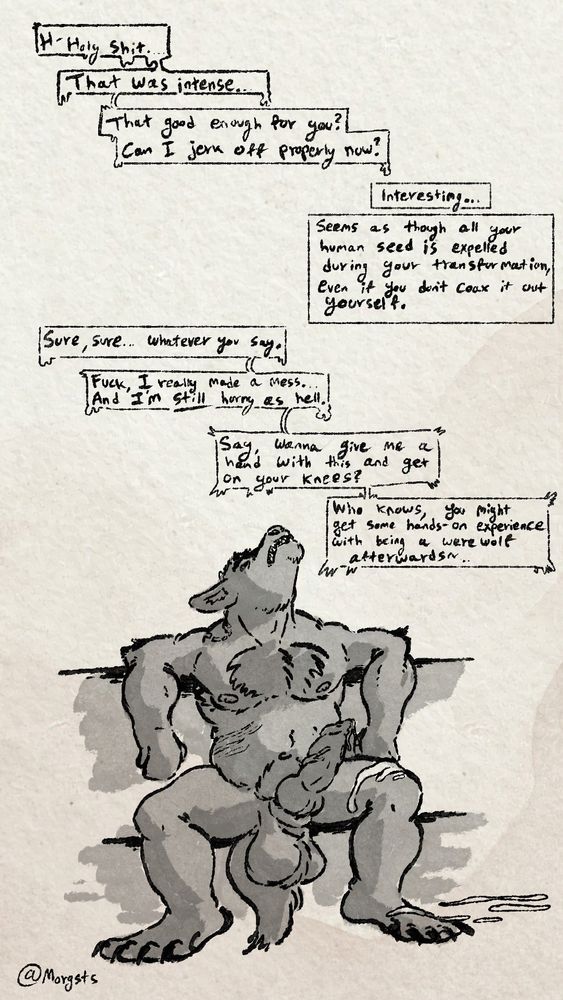 H-Holy shit...
That was intense...
That good enough for you?
Can I jerk off properly now?
Interesting...
Seems as though all your
human seed is expelled
during your transformation,
even if you don't coax it out
yourself.
Sure, sure... whatever you say.
Fuck, I really made a mess...
And I'm still horny as hell.
Say, wanna give me a
hand with this and get
on your knees?
Who knows, you might
get some hands-on experience
with being a werewolf
afterwards~..
@Morgsts